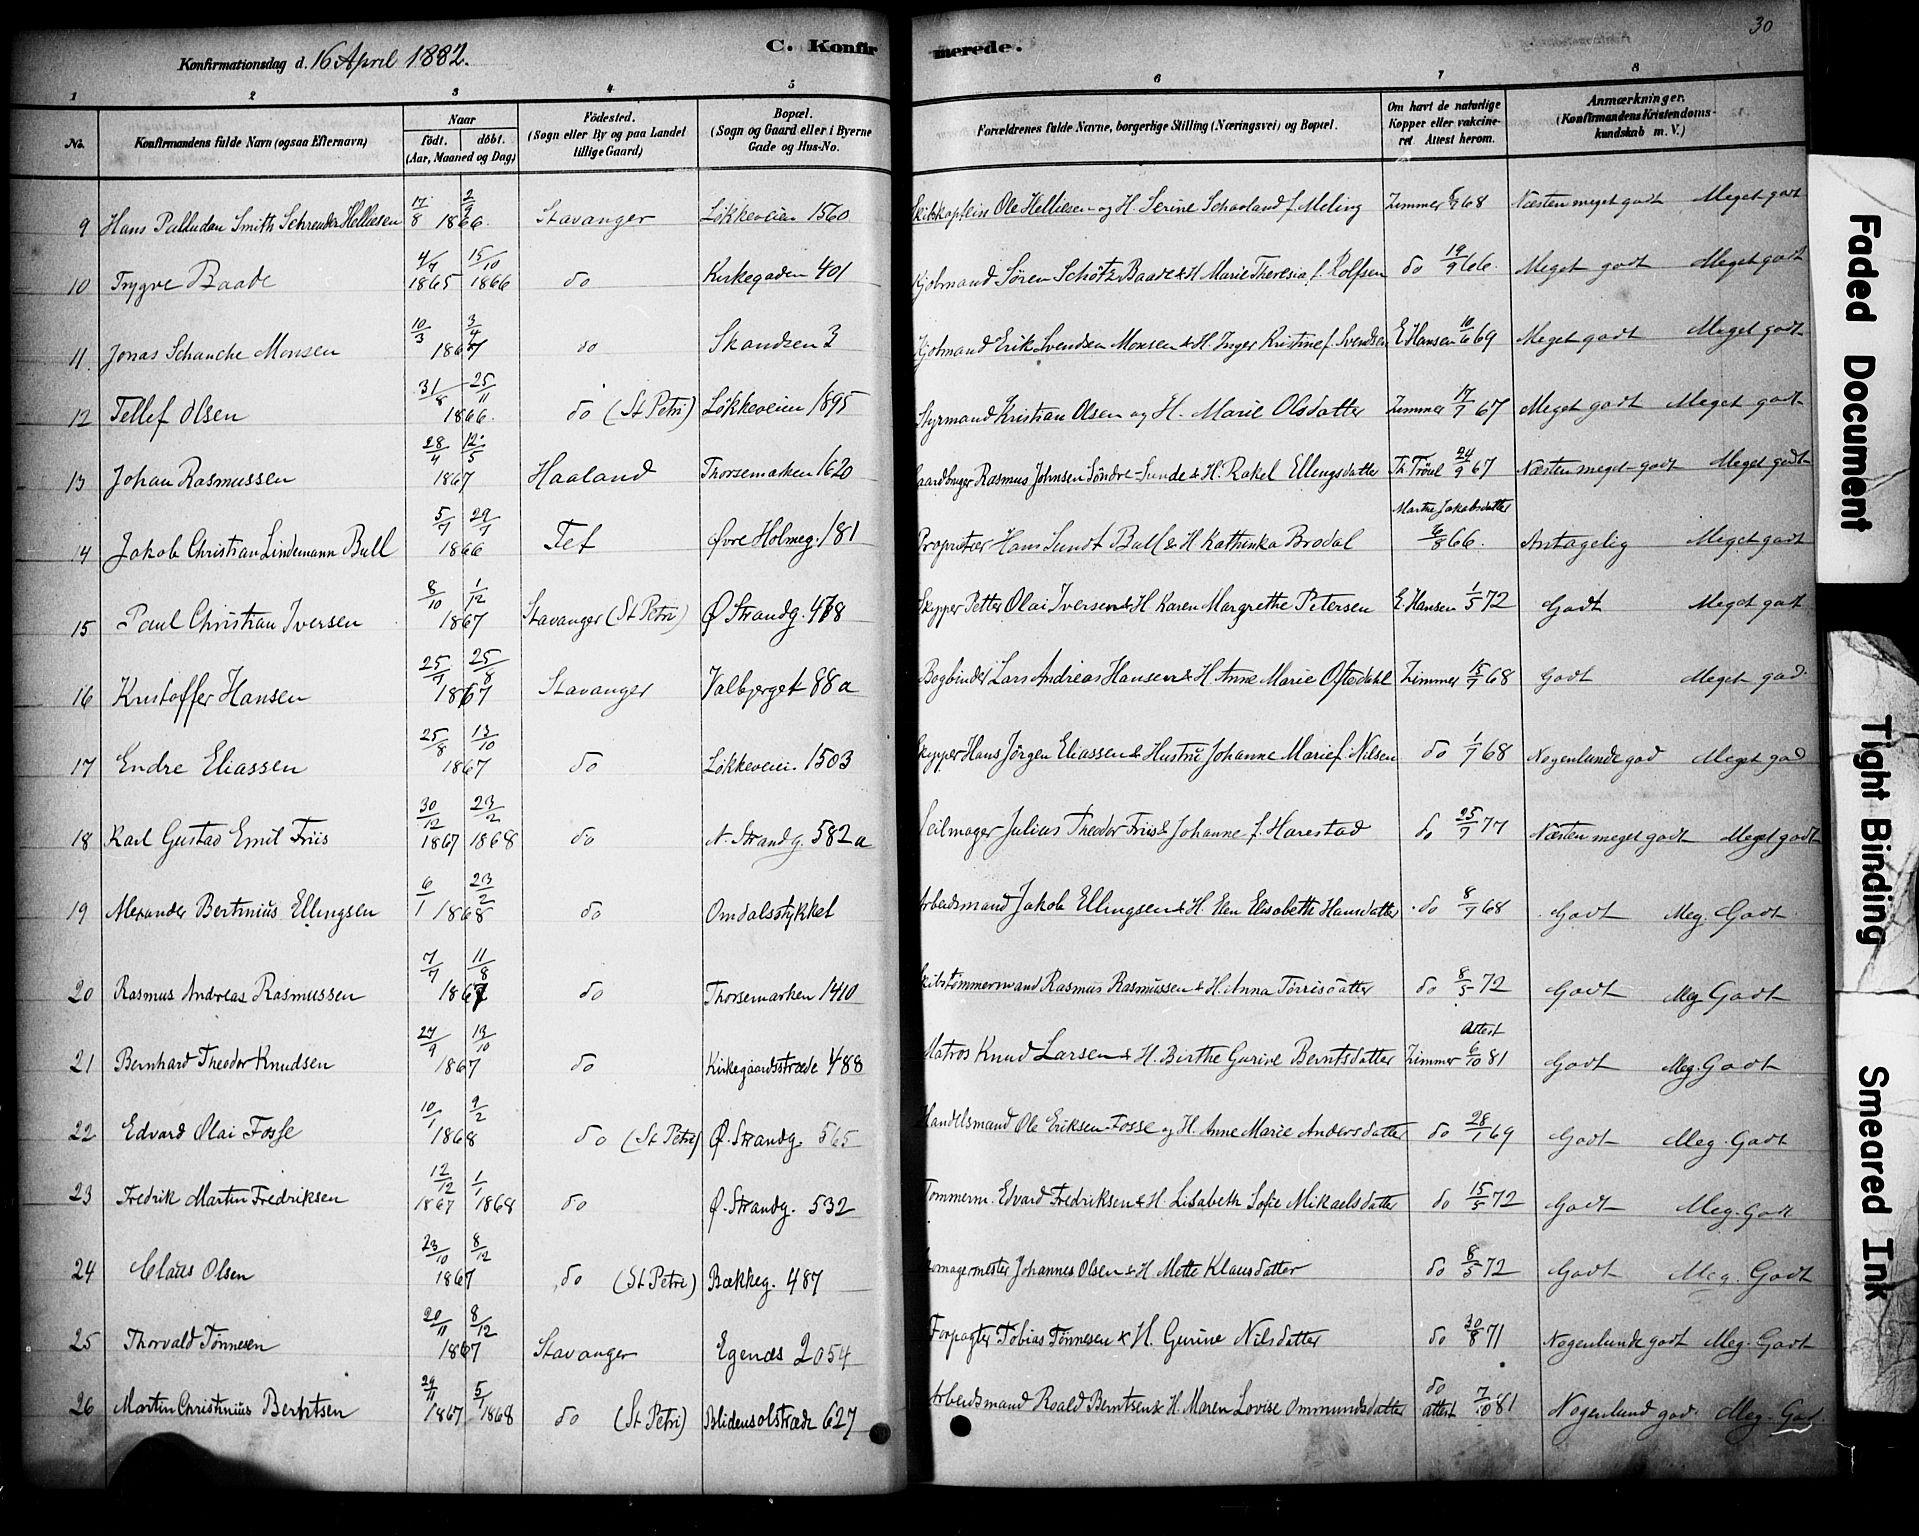 30
Konfirmationsdag d. 16 April 1882.
C. Konfirmerede.
1 2 3 4 5 6 7 8
No.
Konfirmandens fulde Navn (ogsaa Efternavn)
Naar
født. døbt.
(Aar, Maaned og Dag)
Fødested.
(Sogn eller By og paa Landet
tillige Gaard)
Bopæl.
(Sogn og Gaard eller i Byerne
Gade og Hus-No.
Forældrenes fulde Navne, borgerlige Stilling (Næringsvei) og Bopæl.
Om havt de naturlige
Kopper eller vakcine-
ret Attest herom.
Anmærkninger.
(Konfirmandens Kristendoms-
kundskab m. V.)
9 Hans Palludan Smith Schreuder Helliesen 17/8 2/9 1866. Stavanger Løkkeveien 1560 Skibskaptein Ole Helliesen og H. Serine Schaoland f. Meling Zimmer 68 Næsten meget godt Meget godt
10 Trygve Baade 4/7 1865 15/10 1866 do Kirkegaden 401 Kjøbmand Søren Schøtz Baade & H. Marie Theresia f. Rolfsen do 19/9 66. Meget godt Meget godt
11 Jonas Schanche Monsen 10/3 3/4 1867 do Skandsen 3 Kjøbmand Erik Svendsen Monsen & H. Inger Kristine f. Svendsen E Hansen 10/6 69 Meget godt Meget godt
12 Tellef Olsen 31/8 25/11 1866. do (St Petri) Løkkeveien 1895 Styrmand Kristian Olsen og H. Marie Olsdatter Zimmer 17/7 67 Meget godt Meget godt
13 Johan Rasmussen 28/4 12/5 1867 Haaland Thorsemarken 1620 Gaardbruger Rasmus Johnsen Søndre Sunde & H. Rakel Ellingsdatter Th. Troul 24/9 67 Næsten meget godt Meget godt
14 Jakob Christian Lindemann Bull 5/7 29/7 1866 Tet Øvre Holmeg. 181 Proprietær Hans Sundt Bull & H Kathinka Brodal Martha Jakobsdatter 6/8 66. Antagelig Meget godt
15 Paul Christian Iversen 8/10 1/12 1867 Stavanger (St Petri) Ø Strandg. 478 Skipper Petter Olai Iversen & H Karen Margrethe Petersen E. Hansen 1/5 72 Godt Meget godt
16 Kristoffer Hansen 25/7 25/8 1867 Stavanger Valbjerget 88a Bogbinder Lars Andreas Hansen & H. Anne Marie Oftedahl Zimmer 15/7 68 Godt Meget god.
17 Endre Eliassen 25/8 13/10 1867 do Løkkeveie. 1503 Skipper Hans Jørgen Eliassen & Hustru Johanne Marie f. Nilsen do 1/7 68 Nogenlunde god Meget god
18 Karl Gustav Emil Friis 30/12 1867 23/2 1868 do N. Strandg. 582a Seilmager Julius Theodor Friis & Johanne f. Harestad do 25/7 77 Næsten meget godt Meget godt
19 Alexander Bertinius Ellingsen 6/1 23/2 1868 do Omdalsstykket Arbeidsmand Jakob Ellingsen & H. Elen Elisabeth Hansdatter do 8/7 68 Godt Meg. Godt
20 Rasmus Andreas Rasmussen 7/7 11/8 1867 do Thorsemarken 1410 Skibstømmermand Rasmus Rasmussen & H. Anna Tørrisdatter do 8/5 72 Godt Meg Godt
21 Bernhard Theodor Knudsen 27/9 13/10 1867 do Kirkegaardsstræde 488 Matros Knud Larsen & H. Birthe Gurine Berntsdatter Zimmer Attest 6/10 81 Godt Meg. Godt
22 Edvard Olai Fosse 10/1 9/2 1868 do (St Petri) Ø. Strandg. 565 Handelsmand Ole Eriksen Fosse og H. Anne Marie Andersdatter do 28/1 69 Godt Meg. Godt
23 Fredrik Martin Fredriksen 12/12 1867 1/1 1868 do Ø. Strandg. 532 Tømmerm. Edvard Fredriksen & H Lisabeth Sofie Mikaelsdatter do 15/5 72 Godt Meg. Godt
24 Claus Olsen 23/10 8/12 1867 do (St Petri) Bækkeg. 487 Skomagermester Johannes Olsen & H Mette Klausdatter do 8/5 72 Godt Meg. Godt
25 Thorvald Tønnesen 20/11 8/12 1867 Stavanger Egenæs 2054 Forpagter Tobias Tønnesen & H. Gurine Nilsdatter do 30/8 71 Nogenlunde godt Meg. Godt
26 Martin Christinius Berntsen 29/11 1867 5/1 1868 do (St Petri) Blidensolstræde 627 Arbeidsmand Roald Berntsen & H. Maren Lovise Ommundsdatter do attest 7/10 81 Nogenlund god. Meg. God.
Faded Document
Tight Binding
Smeared Ink